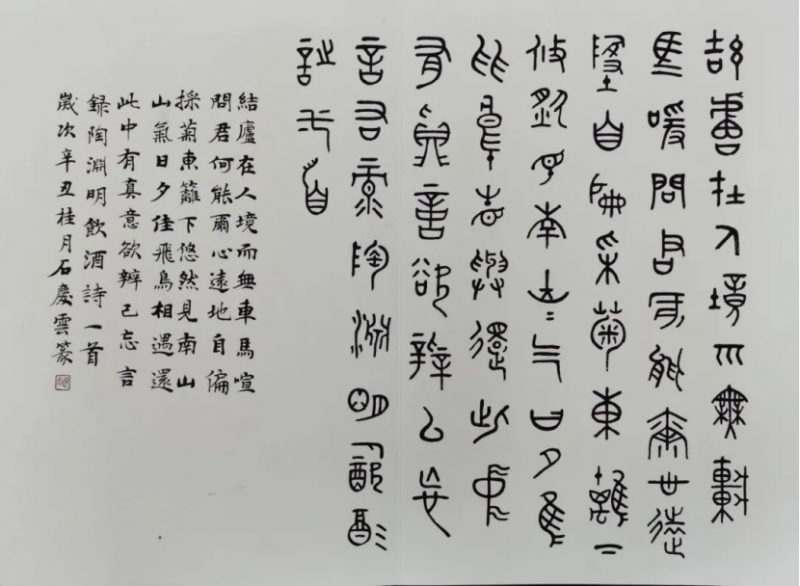 結廬在人境而無車
馬喧問君何能爾心遠
地自偏采菊東籬下
悠然見南山=气日夕佳
飛鳥相與還此中
有真意欲辨已忘
言右录陶淵明飲酒
詩一首
結廬在人境而無車馬喧
問君何能爾心遠地自偏
採菊東籬下悠然見南山
山氣日夕佳飛鳥相遇還
此中有真意欲辨已忘言
録陶淵明飲酒詩一首
歲次辛丑桂月石慶雲篆